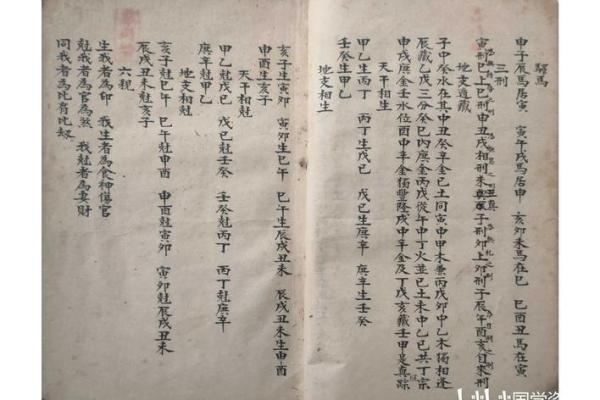 驛馬
申子辰馬居寅 寅午戌馬居申 亥卯未馬在巳 巳酉丑馬在寅
三刑
寅刑巳上巳刑申丑戌相刑未 子刑卯上卯刑子辰午酉亥自來刑
地支遁藏
子中癸水在其中丑癸辛金己土同寅中甲木兼丙戊卯中乙木獨相逢
辰藏乙戊三分癸巳內庚金丙戊從午中丁火並己土未中乙己共丁宗
申戊庚金壬水位酉中辛金獨豐隆戌中辛金及丁戊亥藏壬甲是真踪
天干相生
甲乙生丙丁 丙丁生戊己 戊己生庚辛 庚辛生壬癸
壬癸生甲乙
地支相生
亥子生寅卯 寅卯生巳午 巳午生辰戌丑未 辰戌丑未生申酉
申酉生亥子
天干相尅
甲乙尅戊己 戊己尅壬癸 壬癸尅丙丁 丙丁尅庚辛
庚辛尅甲乙
地支相尅
亥子尅巳午 巳午尅申酉 申酉尅寅卯 寅卯尅辰戌丑未
辰戌丑未尅亥子
六親
生我者為印 我生者為食神傷官
尅我者為官為煞 我尅者為妻財
同我者為比肩比劫
国学